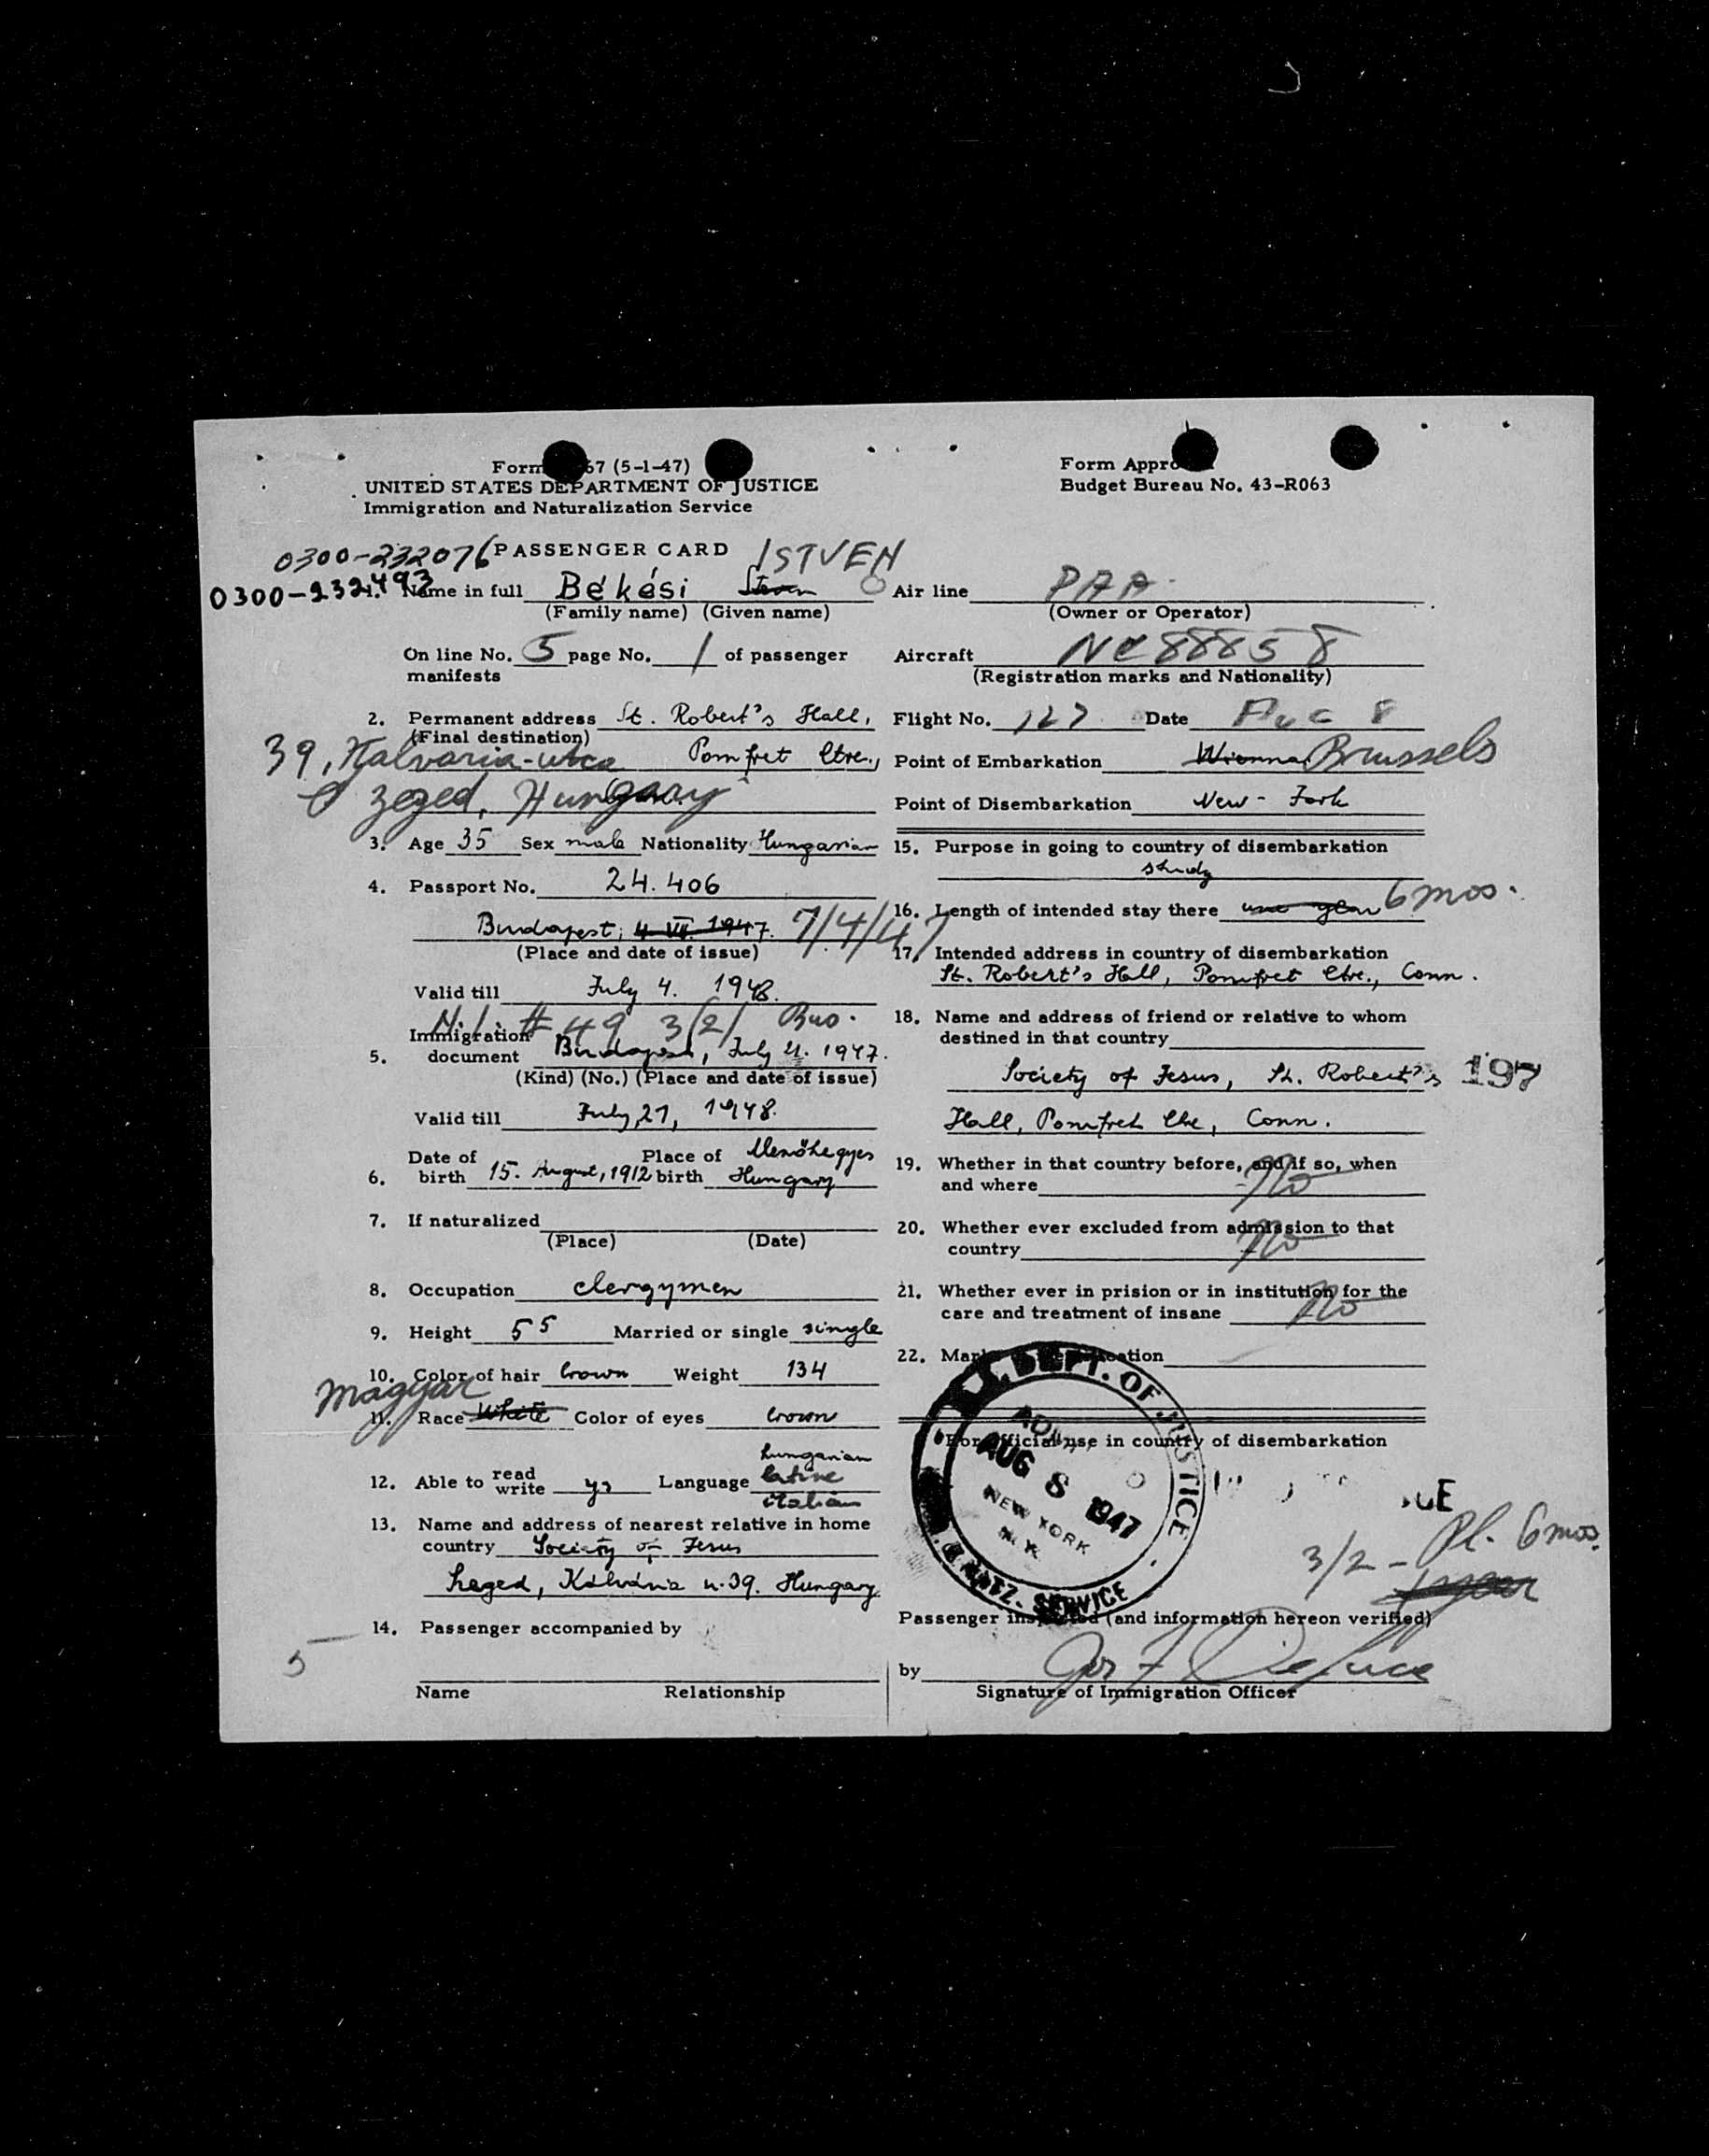 67 (5-1-47)
UNITED STATES DEPARTMENT OF JUSTICE
Immigration and Naturalization Service
Form
Budget Bureau No. 43-R063
0300-232076 PASSENGER CARD ISTVEN
0300-232493
1. Name in full Békési Steven
(Family name) (Given name)
On line No. 5 page No. 1 of passenger
manifests
2. Permanent address St. Robert's Hall,
(Final destination)
39, Kalvaria-utca Pomfret Ctre.,
Szeged, Hungary
3. Age 35 Sex male Nationality Hungarian
4. Passport No. 24.406
Budapest, 4. VII. 1947. 7/4/47
(Place and date of issue)
Valid till July 4. 1948.
N.I. # 49 3/2/
Immigration
5. document Budapest, July 21. 1947.
(Kind) (No.) (Place and date of issue)
Valid till July, 21, 1948.
Date of Place of
6. birth 15. August, 1912 birth Hungary
7. If naturalized
(Place) (Date)
8. Occupation clergymen
9. Height 5 5 Married or single single
10. Color of hair brown Weight 134
Magyar
11. Race White Color of eyes brown
hungarian
12. Able to read write yes Language latine
italian
13. Name and address of nearest relative in home
country Society of Jesus
Szeged, Kálvária u. 39. Hungary
14. Passenger accompanied by
5
Name Relationship
Air line PAA
(Owner or Operator)
Aircraft NC 88858
(Registration marks and Nationality)
Flight No. 127 Date Aug 8
Point of Embarkation Wienna Brussels
Point of Disembarkation New-York
15. Purpose in going to country of disembarkation
study
16. Length of intended stay there one year 6 mos.
17. Intended address in country of disembarkation
St. Robert's Hall, Pomfret Ctre., Conn.
18. Name and address of friend or relative to whom
destined in that country
Society of Jesus, St. Robert's 197
Hall, Pomfret Ctre, Conn.
19. Whether in that country before, and if so, when
and where No
20. Whether ever excluded from admission to that
country No
21. Whether ever in prision or in institution for the
care and treatment of insane No
22.
For official use in country of disembarkation
DEPT. OF JUSTICE
AUG 8 1947
NEW YORK
N.Y.
SERVICE
3/2 - Pl. 6 mos.
1 year
Passenger inspected (and information hereon verified)
by
Signature of Immigration Officer